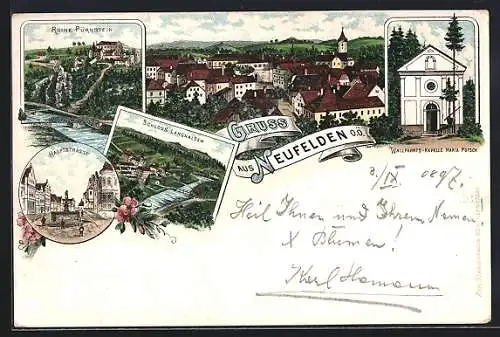 RUINE PÜRNSTEIN
SCHLOSS LANGHALSEN
HAUPTSTRASSE
GRUSS
AUS NEUFELDEN O.Ö.
WALLFAHRTS-KAPELLE MARIA PÖTSCH
Heil Ihnen und Ihrem Namen,
X Blumen!
Karl